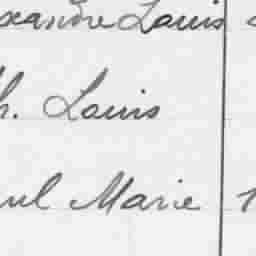 exandre Louis
h. Louis
ul Marie 1